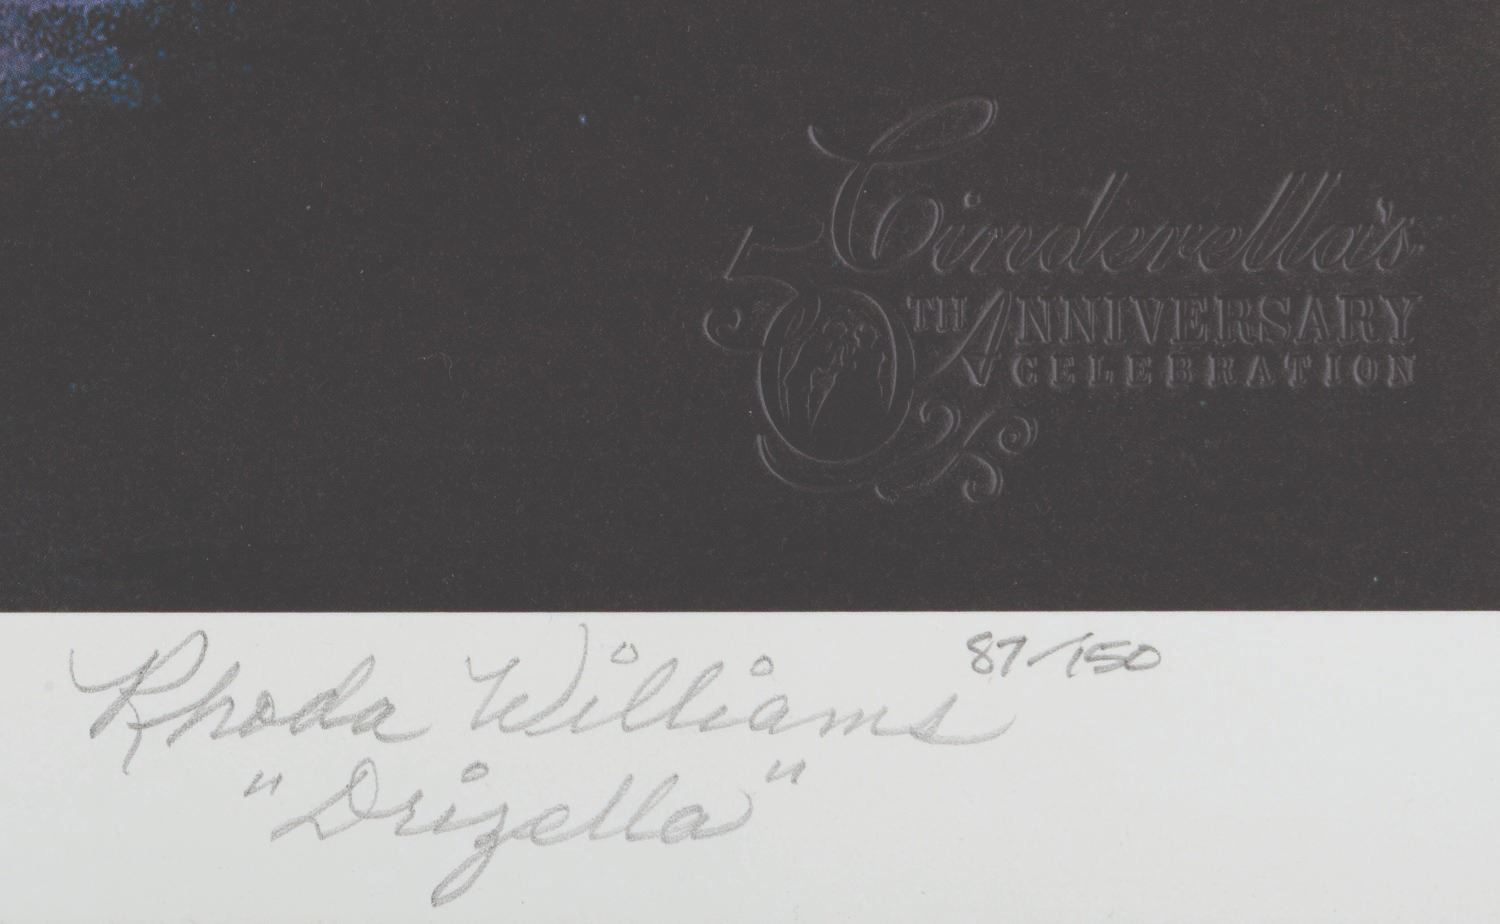 Cinderella's
50TH ANNIVERSARY
CELEBRATION
87/150
Rhoda Williams
"Drizella"